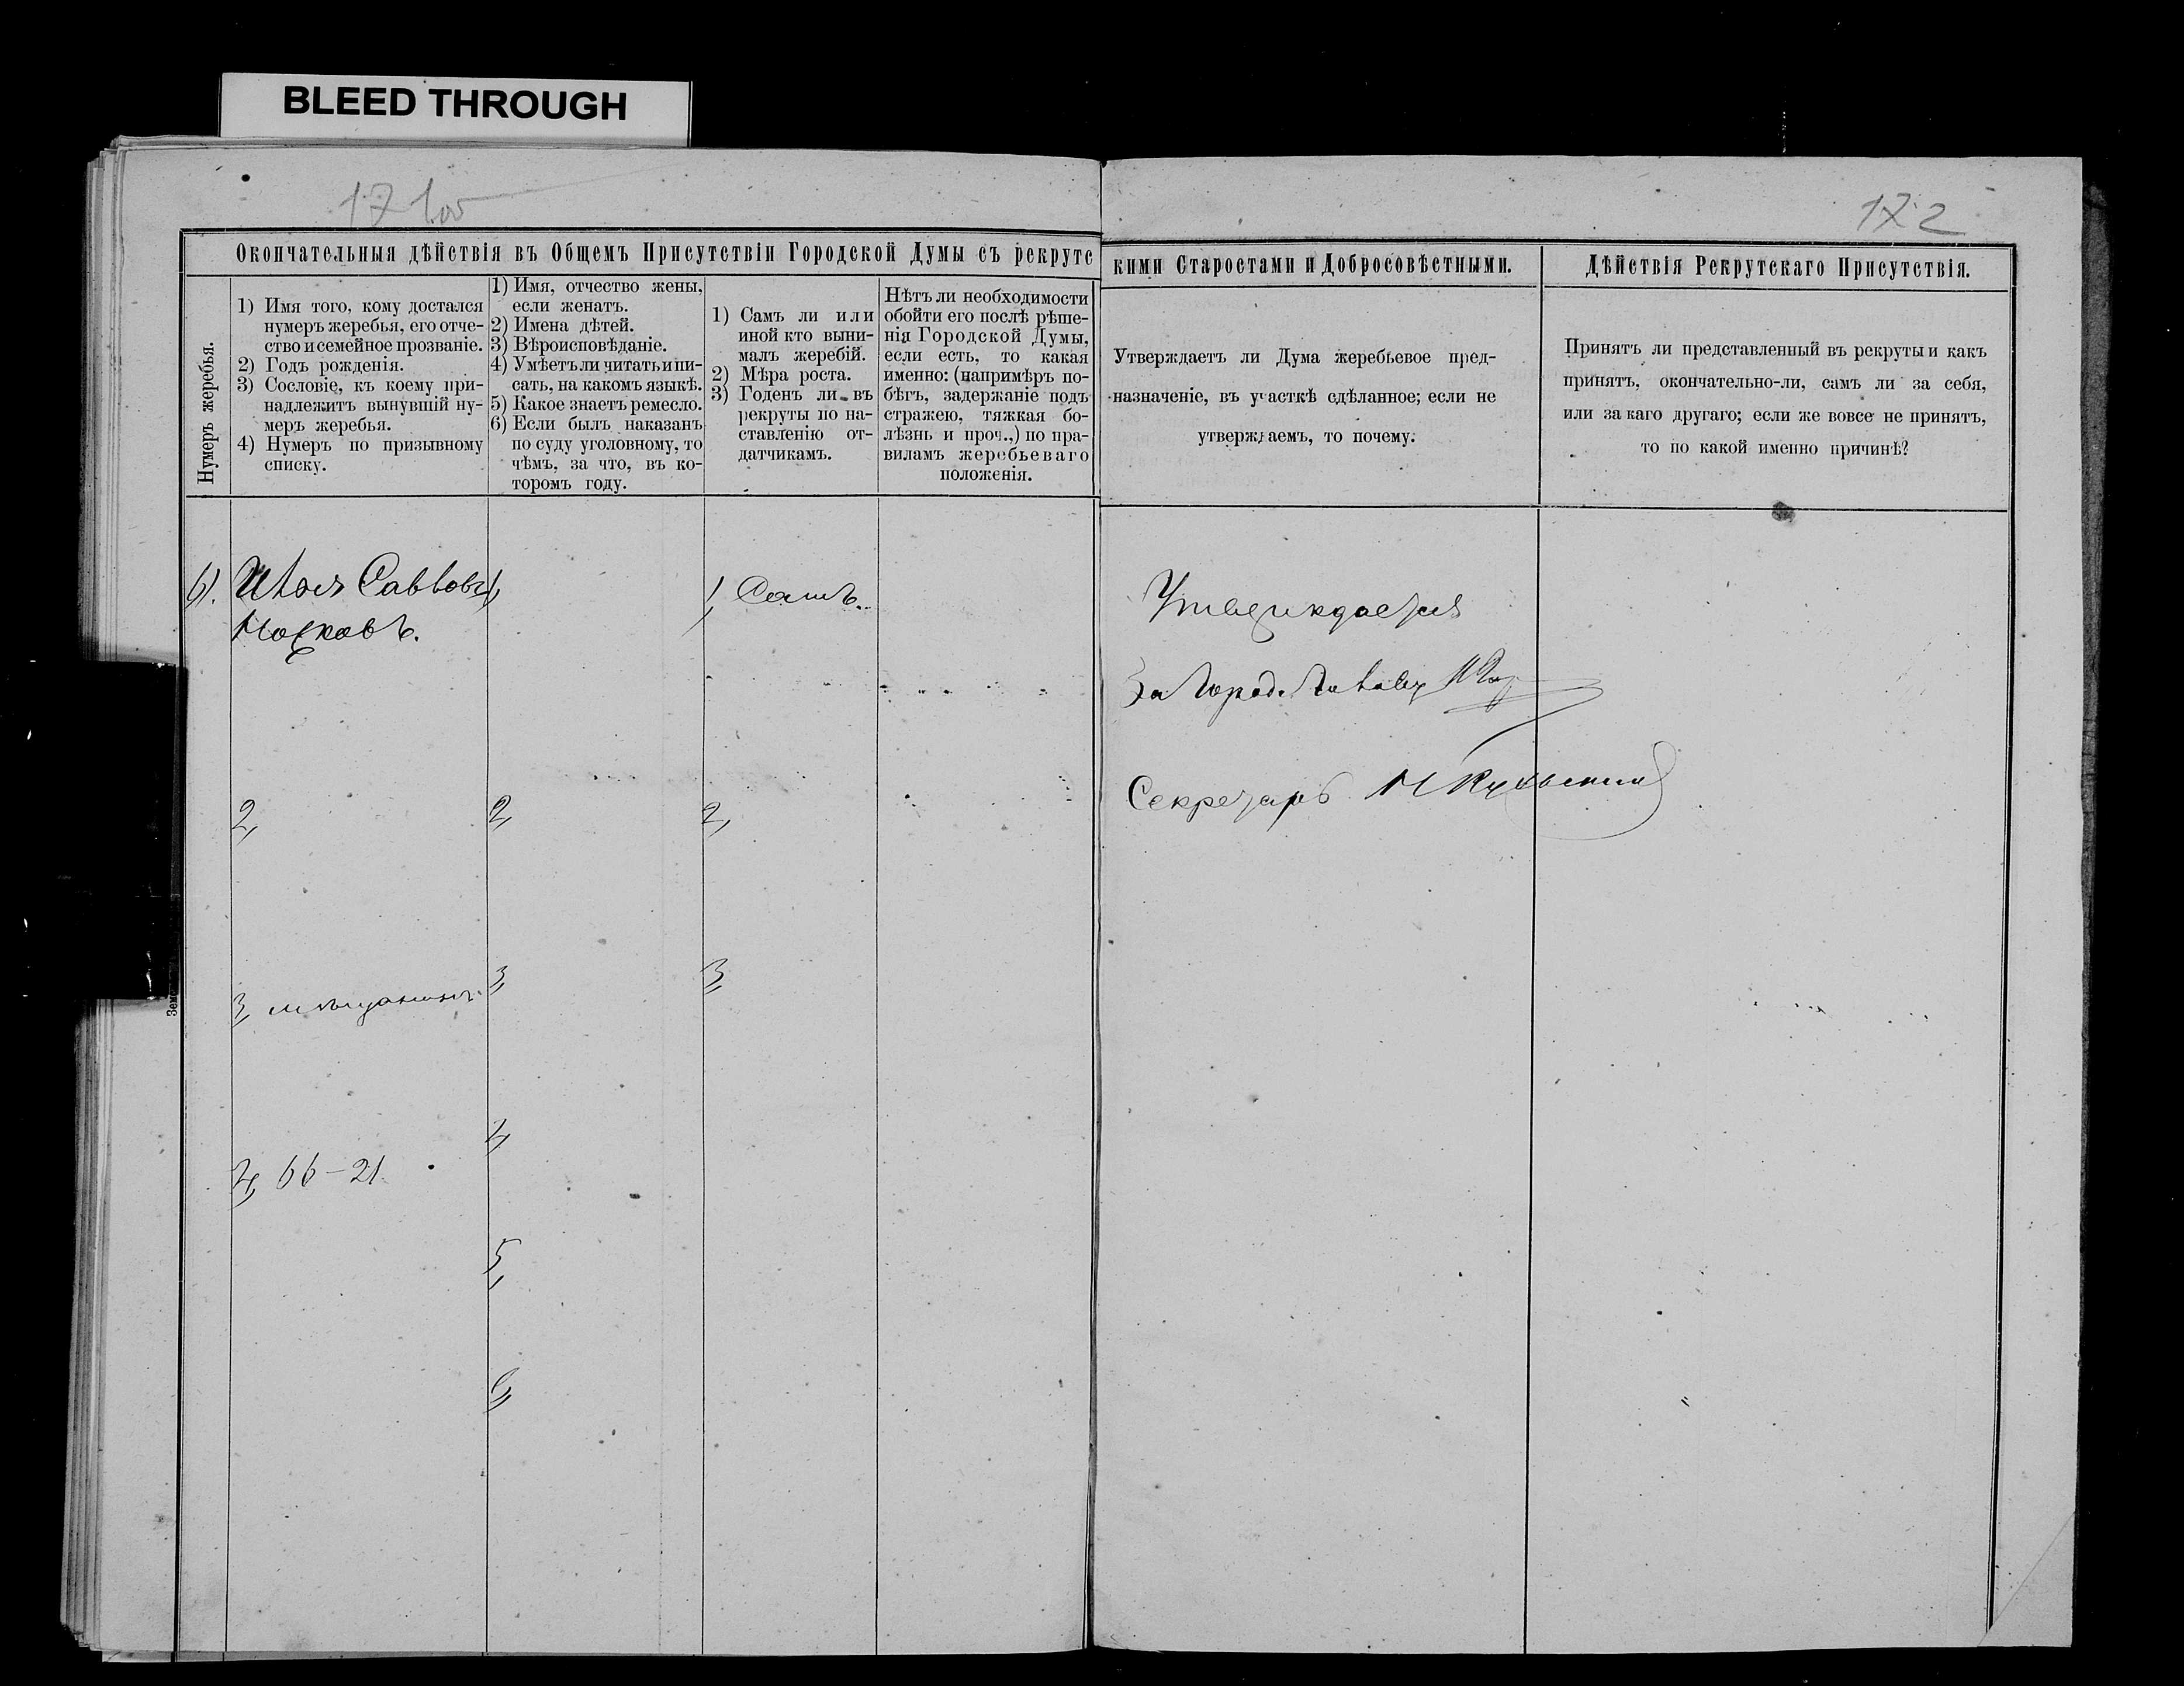 BLEED THROUGH
171об
172
Окончательныя дѣйствія въ Общемъ Присутствіи Городской Думы съ рекрутс
кими Старостами и Добросовѣстными.
Дѣйствія Рекрутскаго Присутствія.
Нумеръ жеребья.
1) Имя того, кому достался
нумеръ жеребья, его отче-
ство и семейное прозваніе.
2) Годъ рожденія.
3) Сословіе, къ коему при-
надлежитъ вынувшій ну-
меръ жеребья.
4) Нумеръ по призывному
списку.
1) Имя, отчество жены,
если женатъ.
2) Имена дѣтей.
3) Вѣроисповѣданіе.
4) Умѣетъ ли читать и пи-
сать, на какомъ языкѣ.
5) Какое знаетъ ремесло.
6) Если былъ наказанъ
по суду уголовному, то
чѣмъ, за что, въ ко-
торомъ году.
1) Самъ ли или
иной кто выни-
малъ жеребій.
2) Мѣра роста.
3) Годенъ ли въ
рекруты по на-
ставленію от-
датчикамъ.
Нѣтъ ли необходимости
обойти его послѣ рѣше-
нія Городской Думы,
если есть, то какая
именно: (напримѣръ по-
бѣгъ, задержаніе подъ
стражею, тяжкая бо-
лѣзнь и проч.,) по пра-
виламъ жеребьеваго
положенія.
Утверждаетъ ли Дума жеребьевое пред-
назначеніе, въ участкѣ сдѣланное; если не
утверждаемъ, то почему.
Принятъ ли представленный въ рекруты и какъ
принятъ, окончательно-ли, самъ ли за себя,
или за каго другаго; если же вовсе не принятъ,
то по какой именно причинѣ?
Савовъ
1,
1, Самъ.
2,
2,
2,
3, мѣщанинъ
3,
3,
4, 66-21
4,
5,
6,
Утверждается
За Город. Голову
Секретарь
Зем